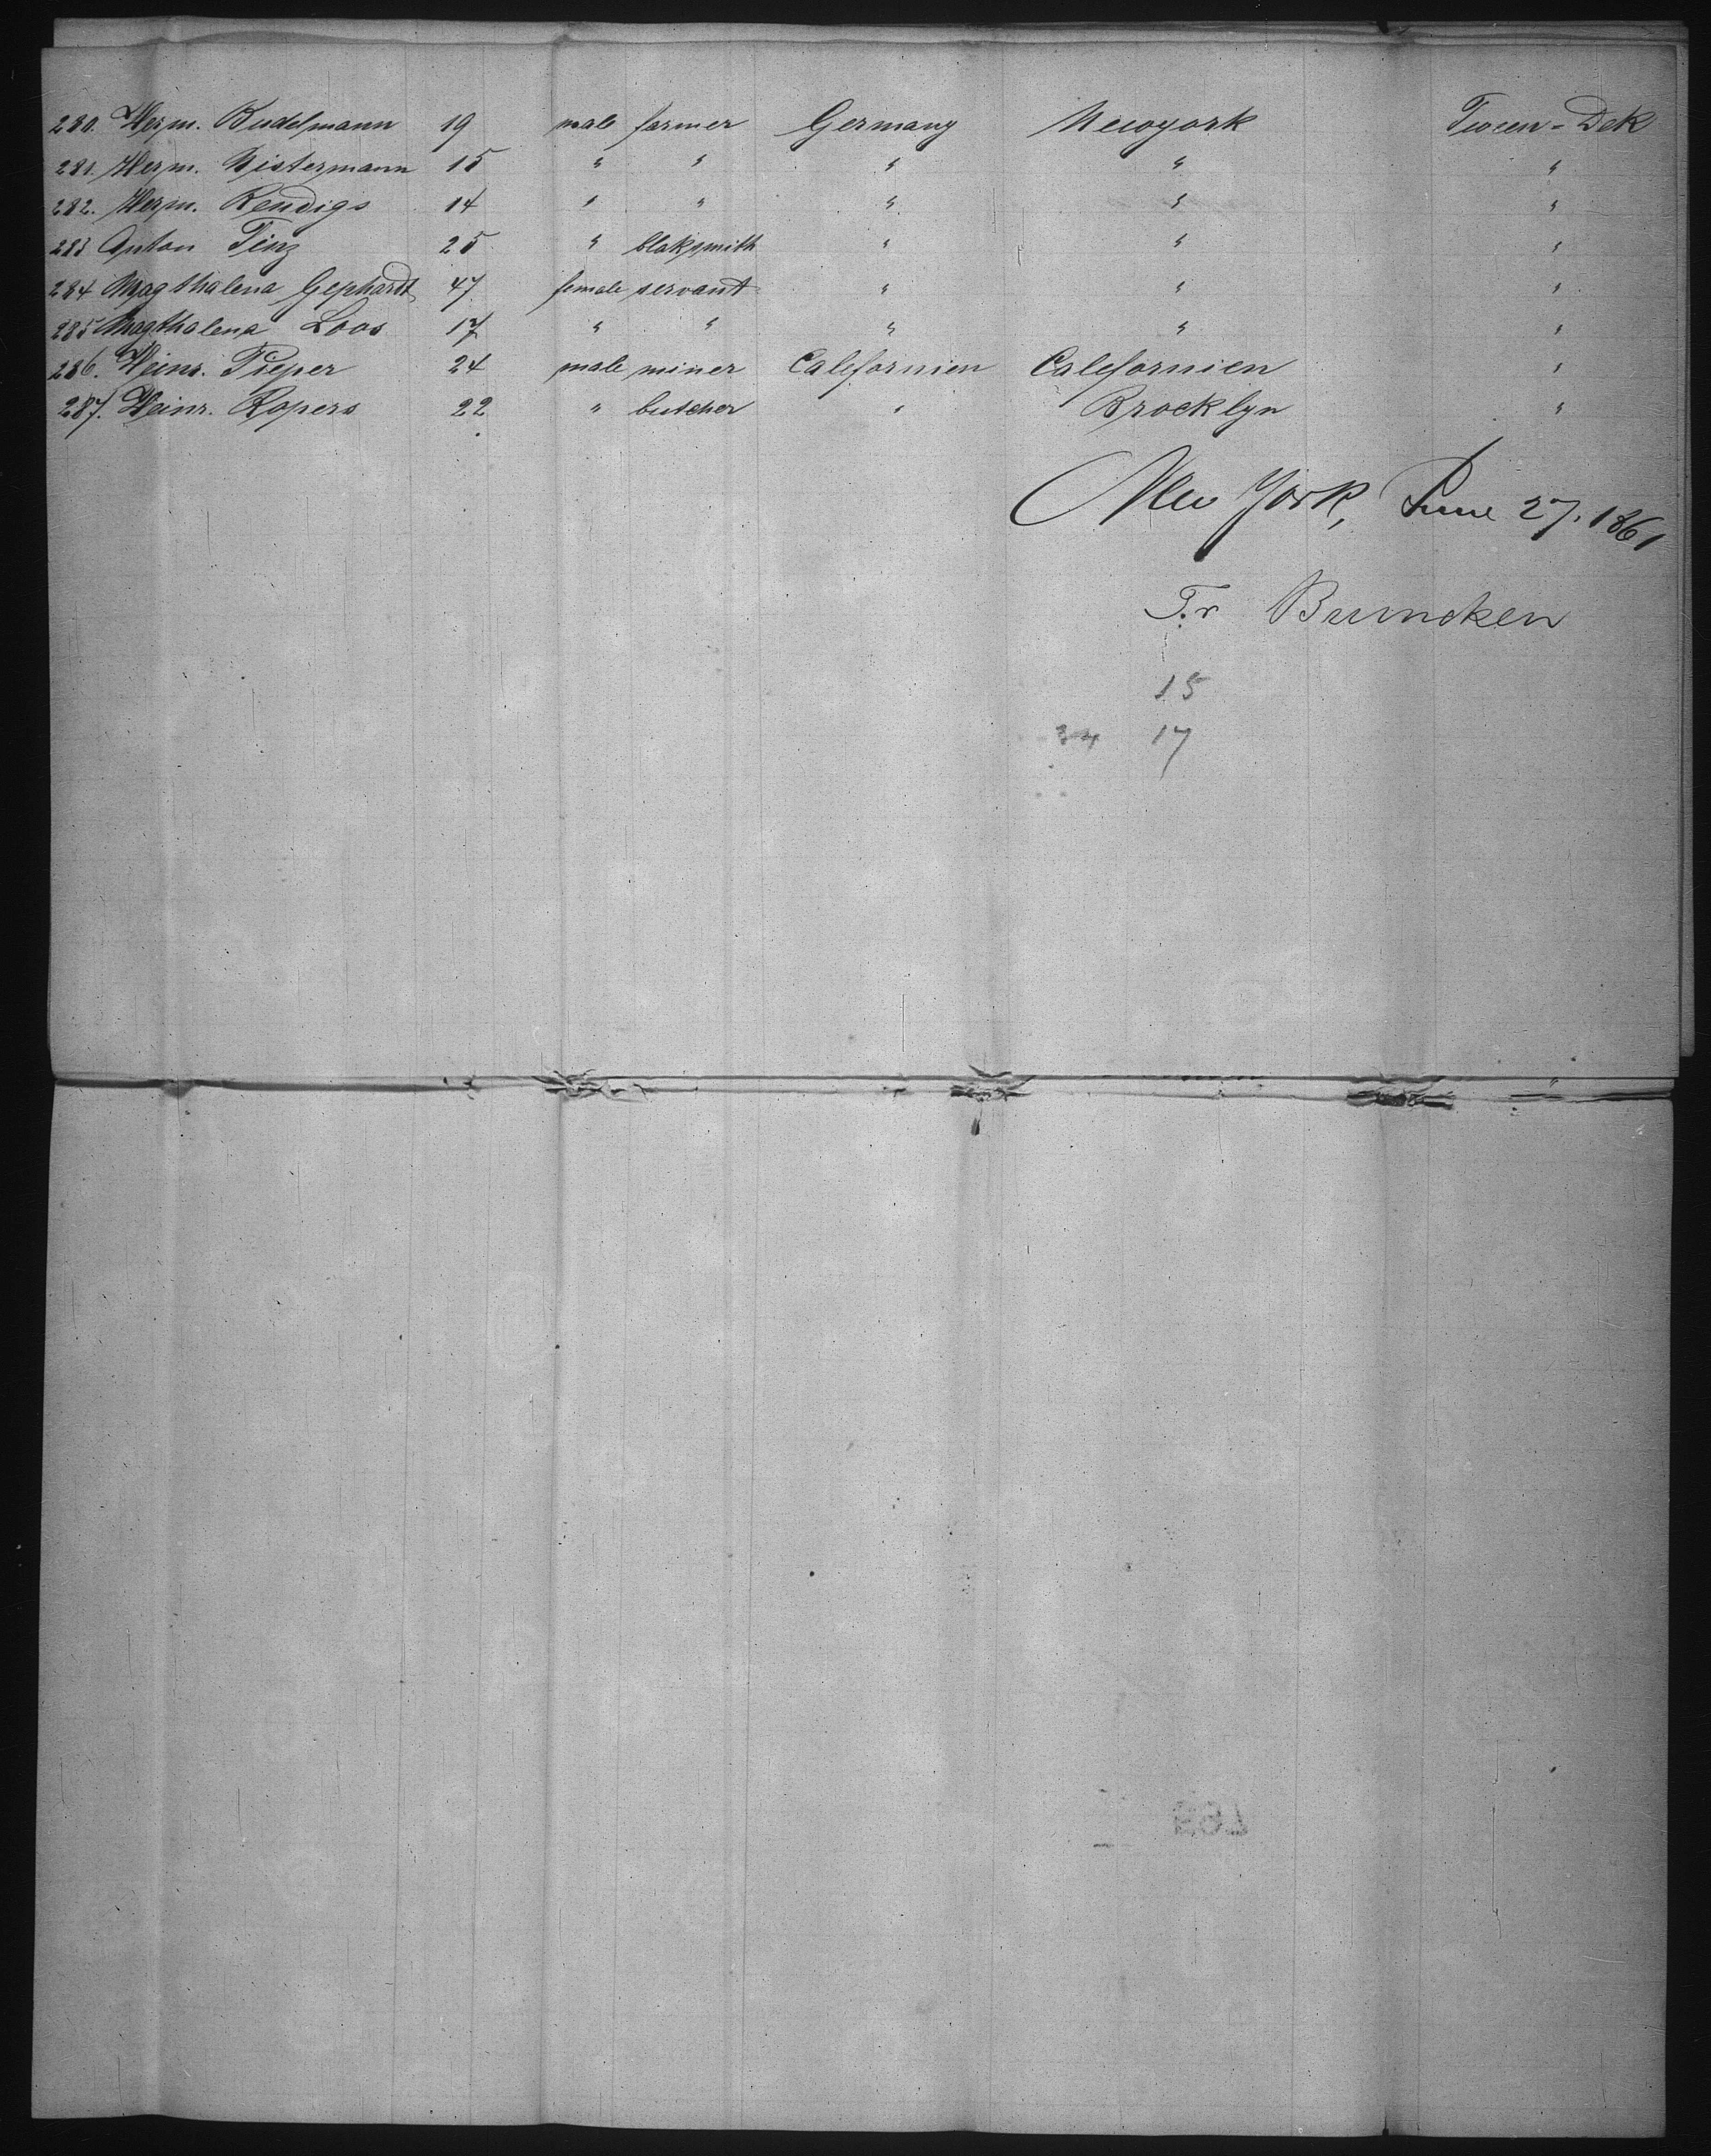 280. Herm. Budelmann 19 male farmer Germany Newyork Tween-Dek
281. Herm. Nistermann 15 " " " " "
282. Herm. Rendigs 14 " " " " "
283 Anton Tinz 25 " blaksmith " " "
284 Magthalena Gephardt 47 female servant " " "
285 Magthalena Loos 17 " " " " "
286. Heinr. Pieper 24 male miner Californien Californien "
287. Heinr. Ropers 22 " butcher " Brocklyn "
New York, June 27. 1861
Fr Bruncken
15
34 17